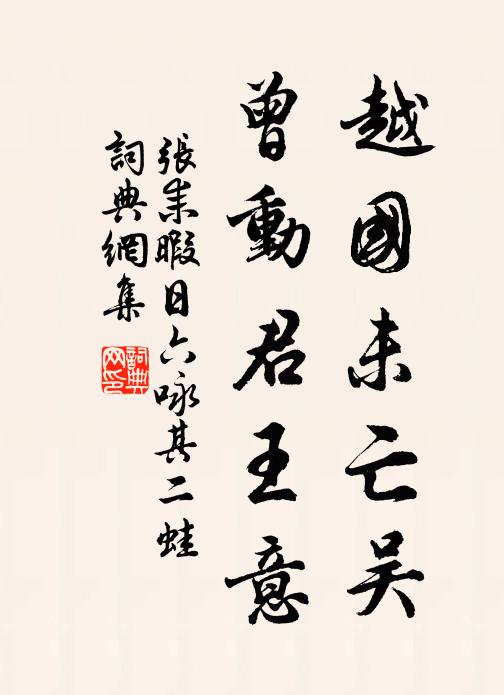 越國未亡吴
曾動君王意
張耒暇日六咏其二蛙
詞典網集
詞典網印